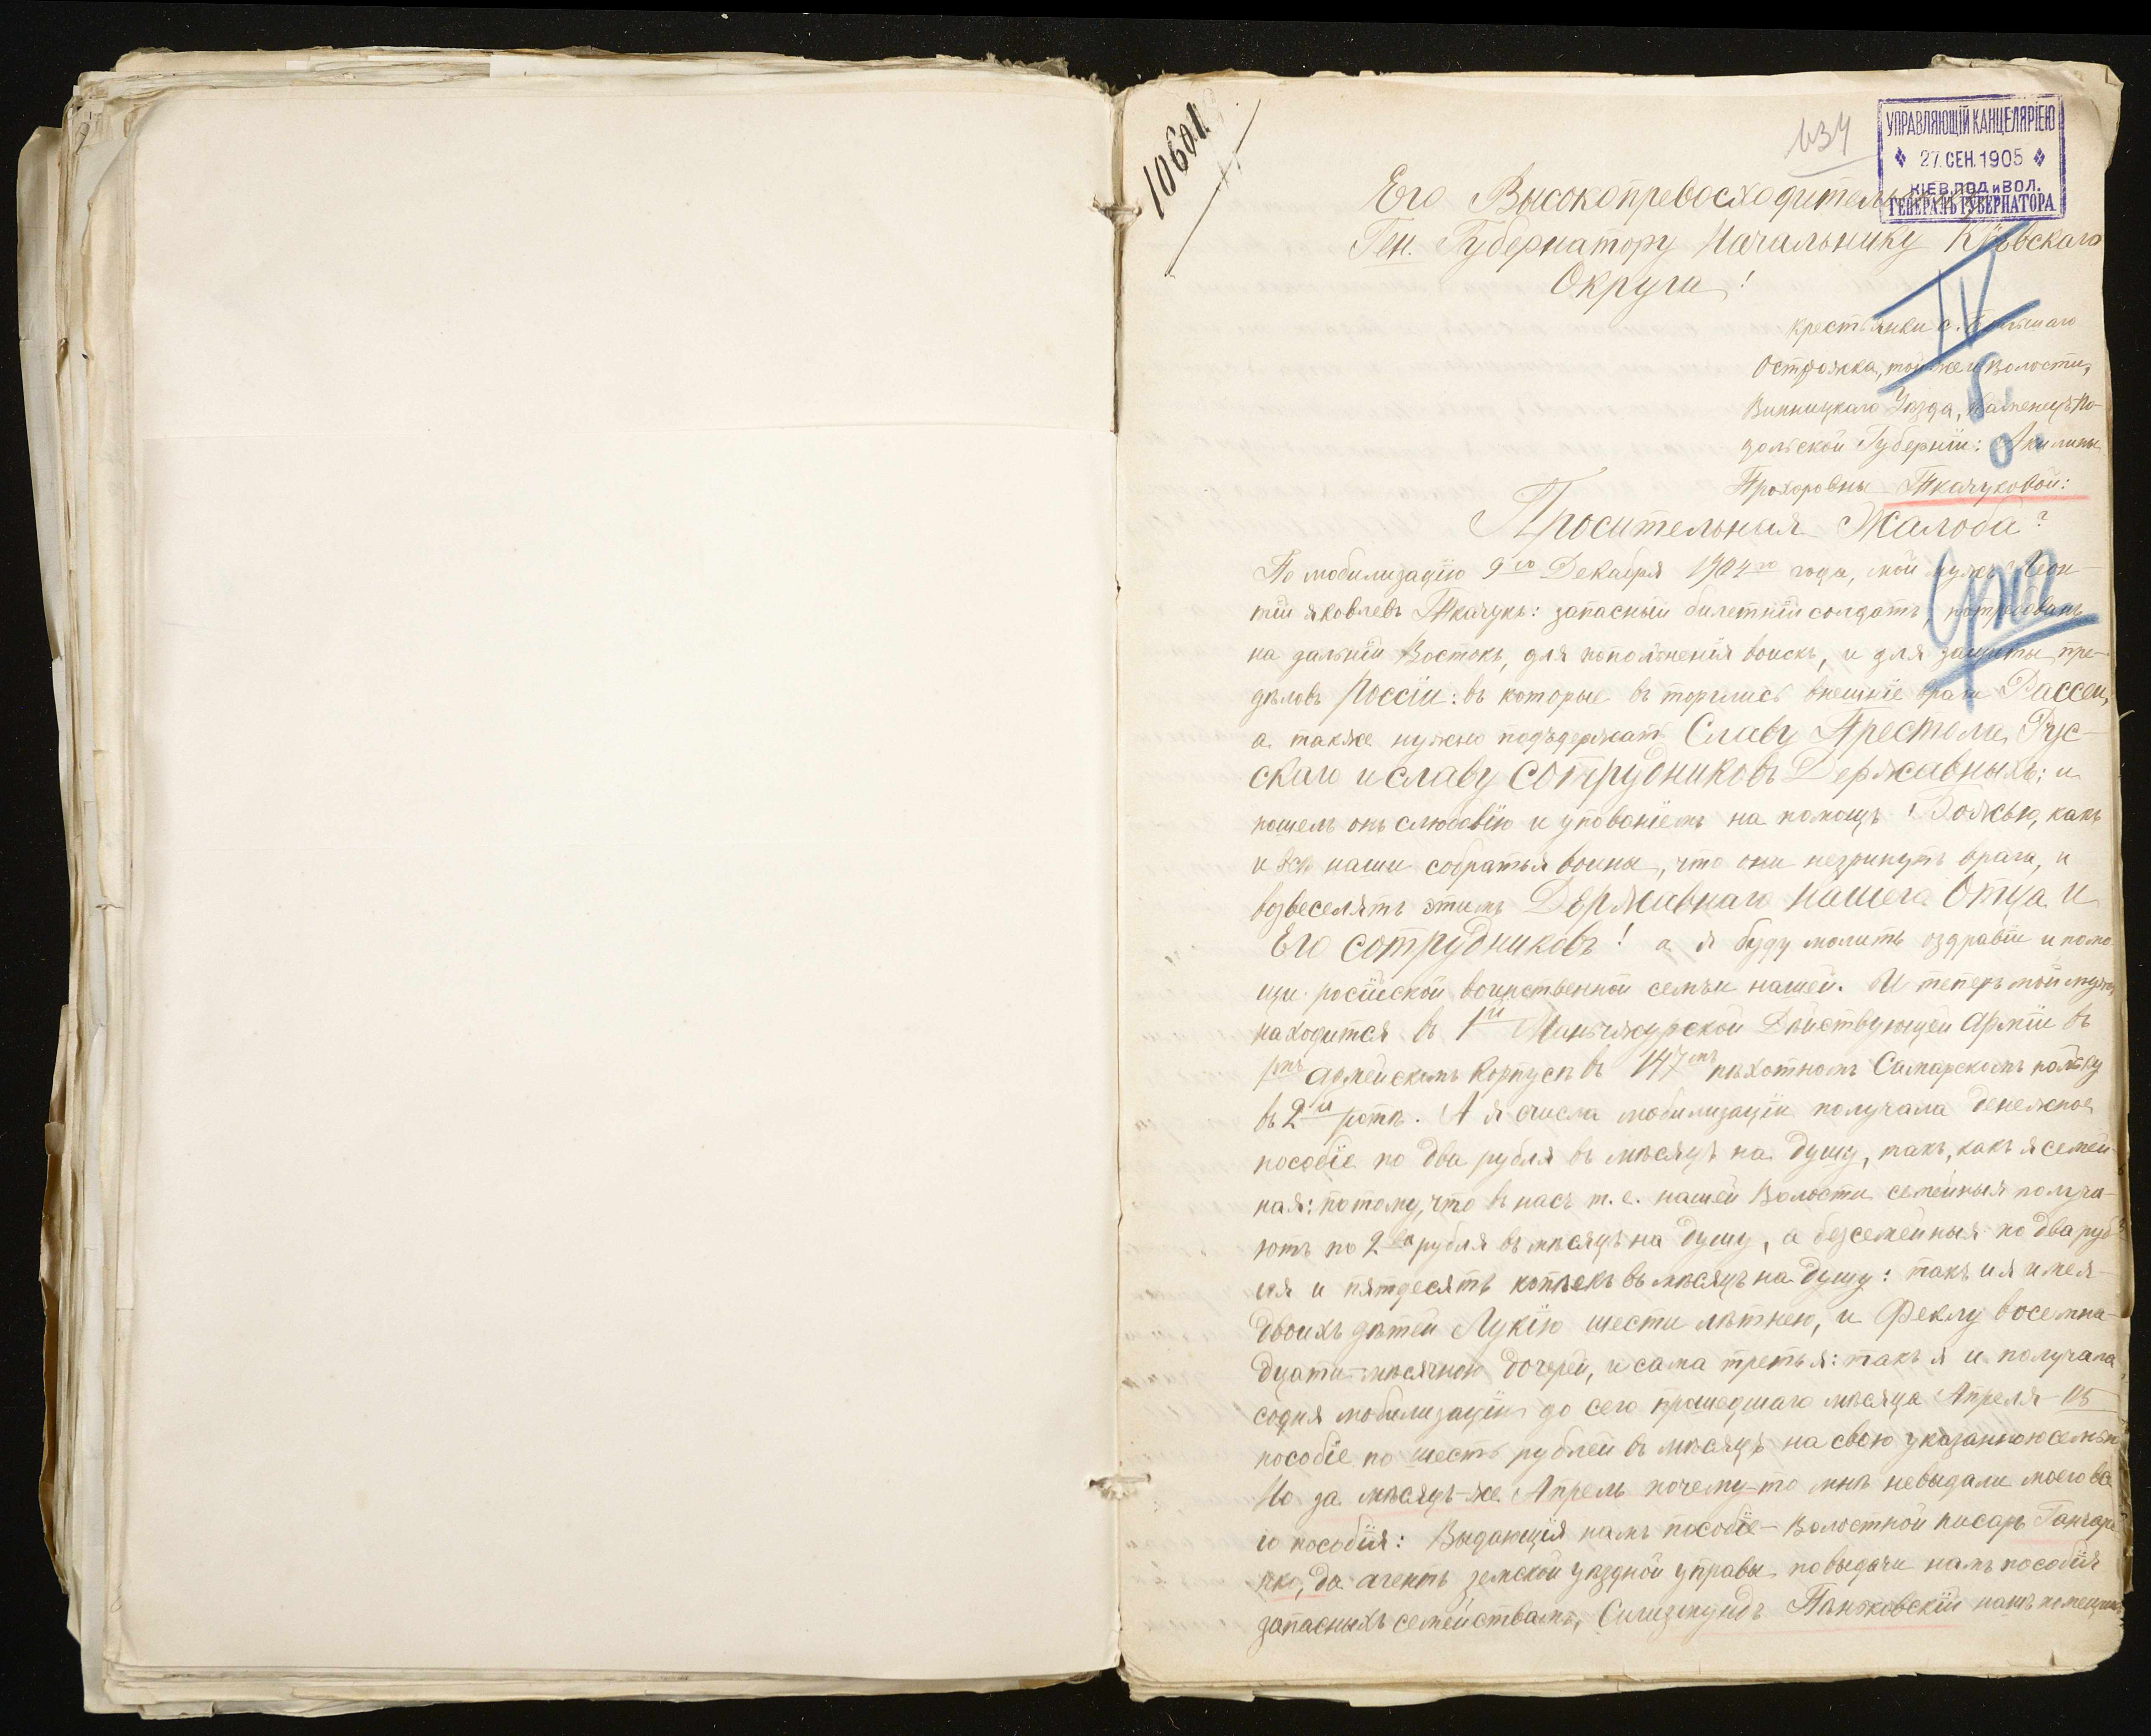 10601
434
УПРАВЛЯЮЩІЙ КАНЦЕЛЯРІЕЮ
27. СЕН. 1905
КІЕВ. ПОД. и ВОЛ.
ГЕНЕРАЛЪ ГУБЕРНАТОРА
Его Высокопревосходительству
Ген. Губернатору Начальнику Кіевскаго
Округа!
крестьянки с.
Острожка, той же волости,
Винницкаго Уѣзда, Каменецъ По-
дольской Губерніи: Акилины
Прохоровны Ткачуковой:
Просительная Жалоба?
По мобилизацію 9го Декабря 1904го года, мой мужъ Леон-
тій яковлевъ Ткачукъ: запасный билетній солдатъ, потребованъ
на дальній Востокъ, для пополненія воискъ, и для защиты пре-
дѣловъ Россіи: въ которые въ торглись внешніе враги Рассеи,
а также нужно подъдержать Славу Престола Рус-
скаго и славу сотрудниковъ Державныхъ: и
пошелъ онъ слюбовію и упованіемъ на помощъ Божью, какъ
и всѣ наши собратья воины, что они незринутъ врага, и
возвеселятъ этимъ Державнаго нашего Отца и
Его сотрудниковъ! а я буду молить оздравіи и помо-
щи російской воинственной семъи нашей. И теперь мой мужъ
находится въ 1й Маньчжурской Дѣйствующей Арміи въ
армейскомъ Корпусѣ въ 147мъ пѣхотномъ Самарскомъ полку
въ 2й ротѣ. А я счисла мобилизаціи получала денежное
пособіе по два рубля въ мѣсяцъ на душу, такъ, какъ я семей-
ная: потому, что въ насъ т. е. нашей Волости семейныя получа-
ютъ по 2ва рубля въ мѣсяцъ на душу, а безсемейныя по два руб-
ля и пятдесятъ копѣекъ въ мѣсяцъ на душу: такъ и я имея
двоихъ дѣтей Лукію шести лѣтнею, и Феклу восемна-
дцати-мѣсячною дочерей, и сама третья: такъ я и получала
содня мобилизаціи до сего прошедшаго мѣсяца Апреля
пособіе по шесть рублей въ мѣсяцъ на свою указанною семью
Но за мѣсяцъ-же Апрель почему-то мнѣ невыдали моего все-
го пособія: Выдающія намъ пособіе — Волостной писарь Гончаре-
нко, да агентъ земской уѣздной управы по выдачи намъ пособія
запасныхъ семействамъ, Сигизмундъ Паньковскій нашъ помещикъ